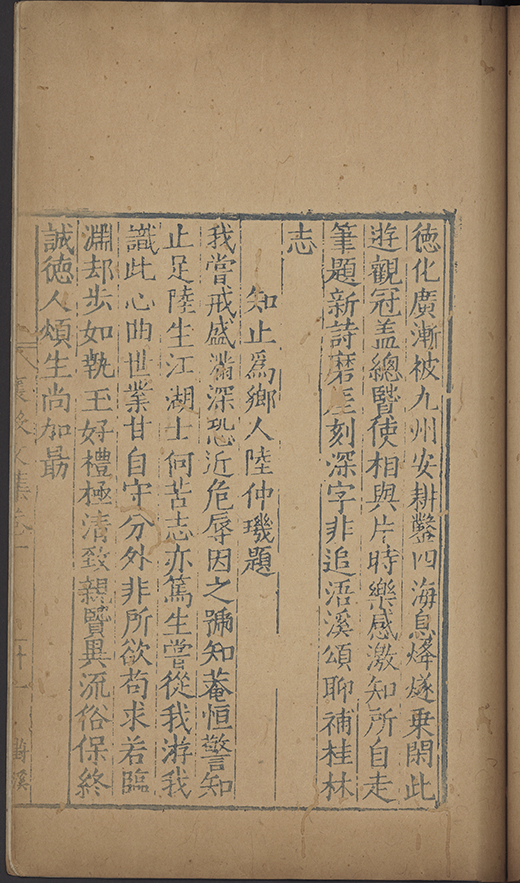 徳化廣漸被九州安耕鑿四海息烽燧乗閑此
遊觀冠盖總賢使相與片時樂感激知所自走
筆題新詩磨崖刻深字非追浯溪頌聊補桂林
志
知止爲鄉人陸仲璣題
我嘗戒盛滿深恐近危辱因之號知菴恒警知
止足陸生江湖士何苦志亦篤生嘗從我游我
識此心曲世業甘自守分外非所欲苟求若臨
淵却步如執玉好禮極清致親賢異流俗保終
誠徳人頌生尚加勗
襄毅文集卷一